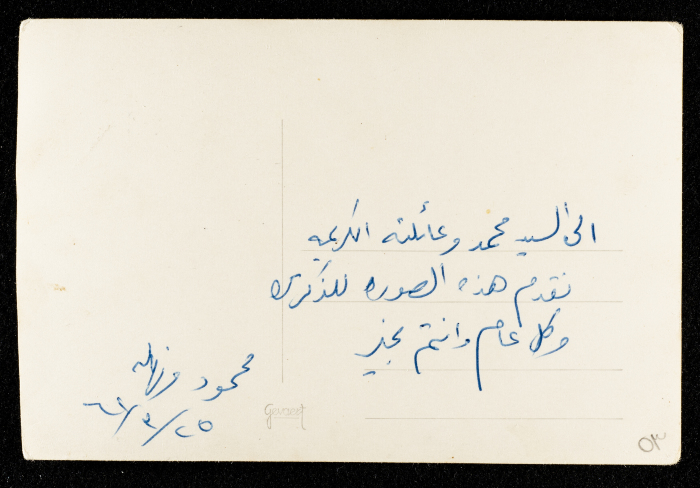 الى السيد محمد وعائلته الكريمه
نقدم هذه الصوره للذكرى
وكل عام وانتم بخير
محمود
٢٥/٣/٦٢
Gevaert
٥٣